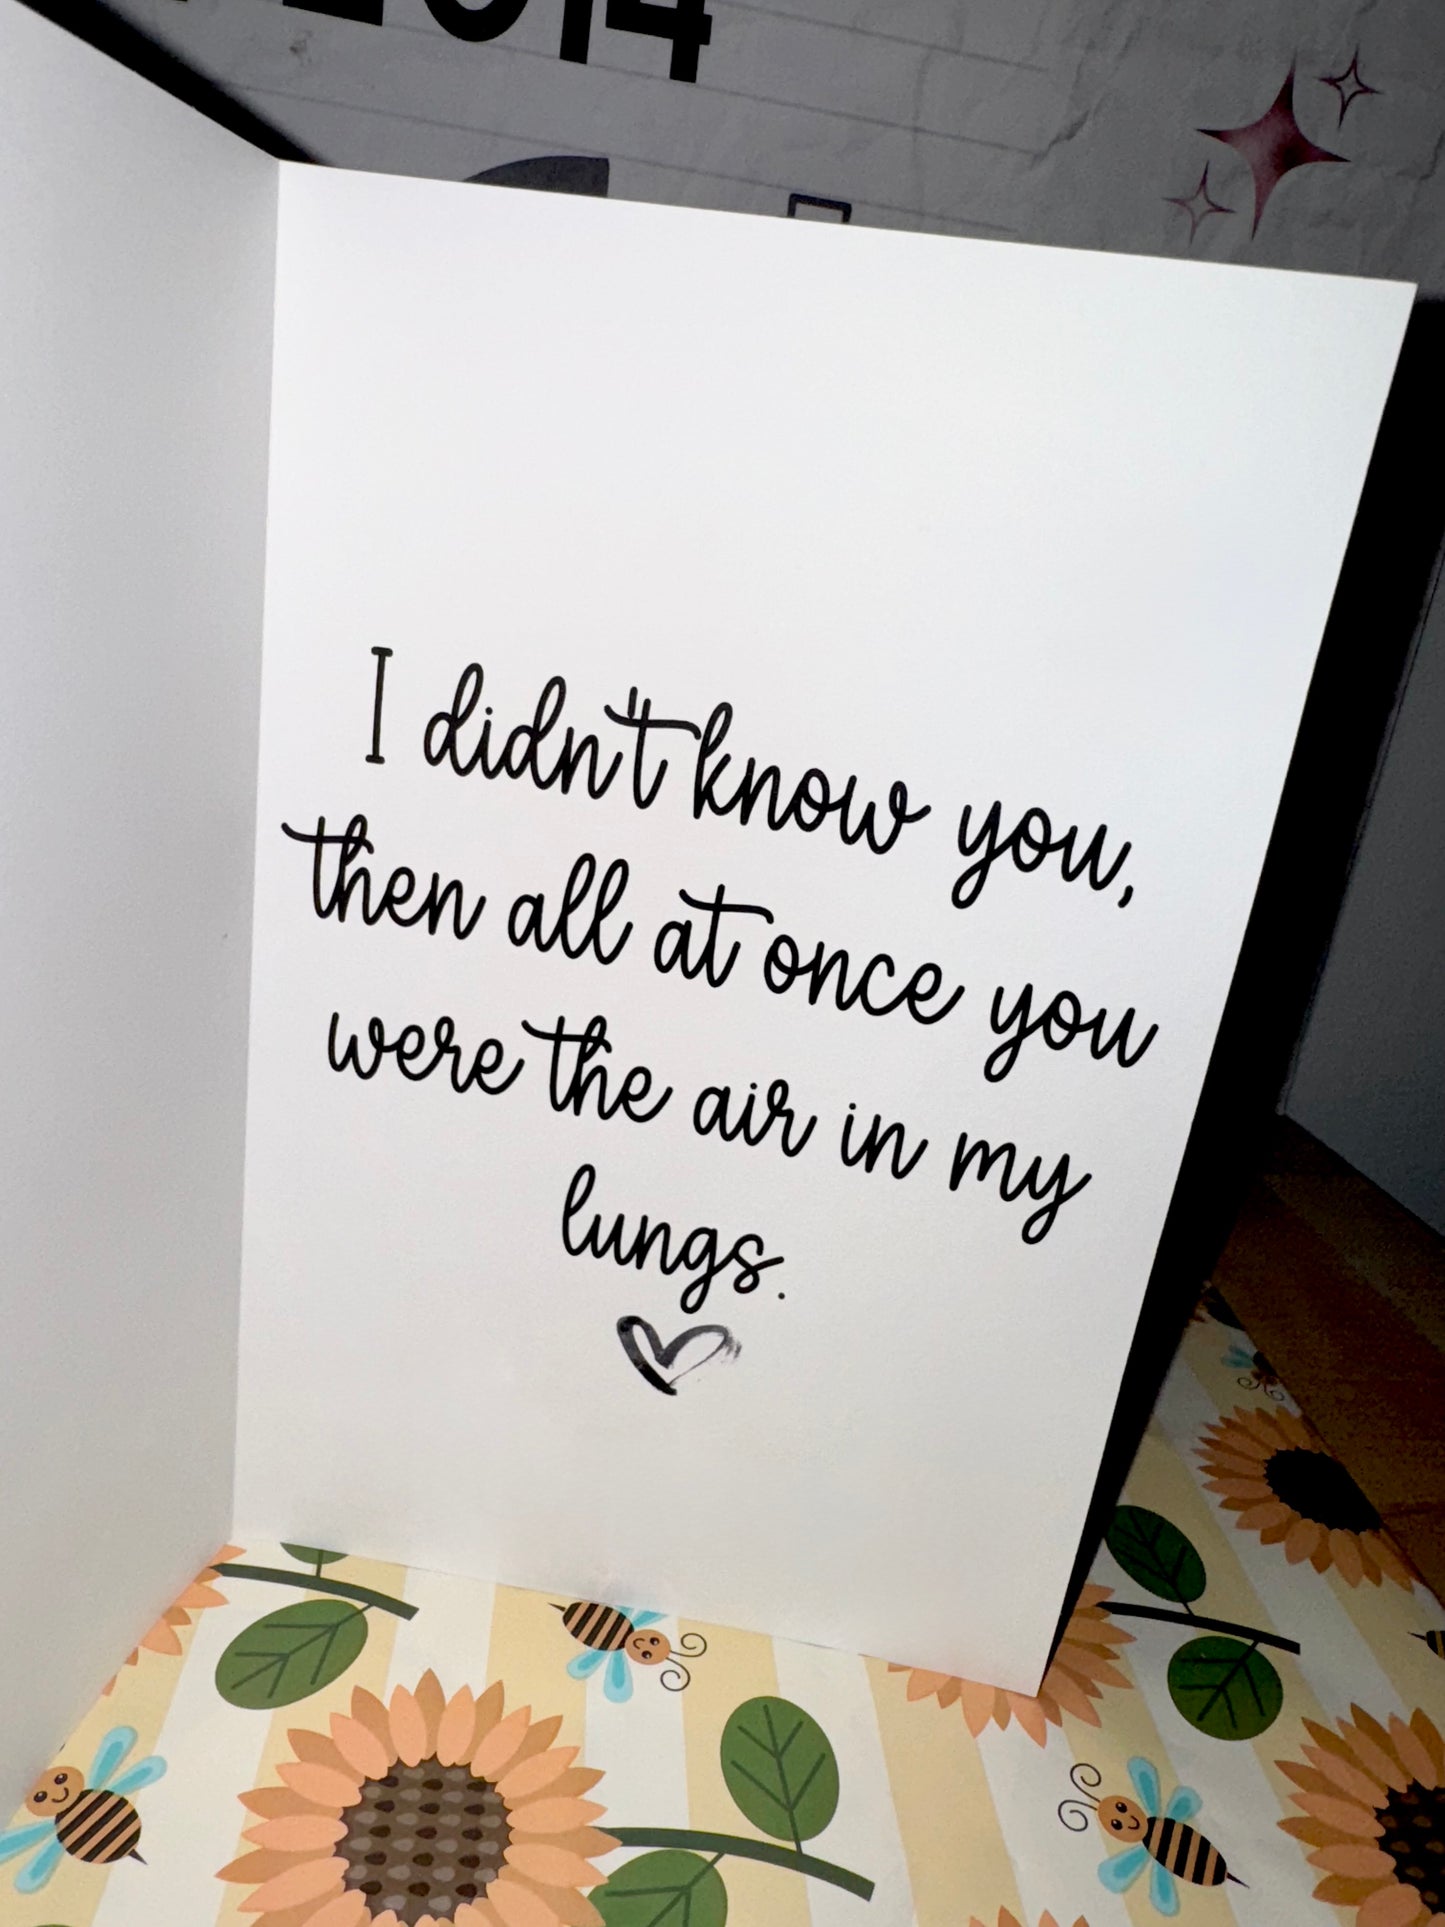 2014
I didn't know you,
then all at once you
were the air in my
lungs.